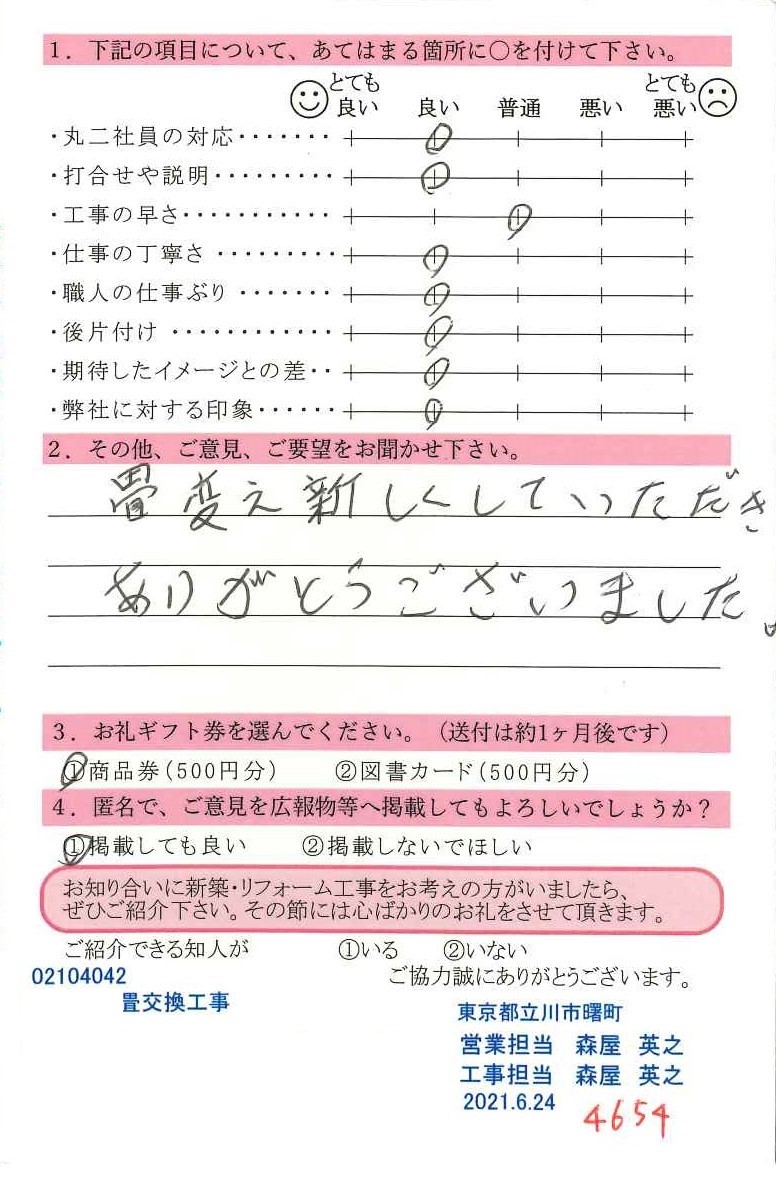 1．下記の項目について、あてはまる箇所に○を付けて下さい。
とても良い 良い 普通 悪い とても悪い
・丸二社員の対応・・・・・・・
・打合せや説明・・・・・・・・・
・工事の早さ・・・・・・・・・・・
・仕事の丁寧さ・・・・・・・・・
・職人の仕事ぶり・・・・・・・
・後片付け・・・・・・・・・・・・
・期待したイメージとの差・・
・弊社に対する印象・・・・・・
2．その他、ご意見、ご要望をお聞かせ下さい。
畳変え新しくしていただき
ありがとうございました。
3．お礼ギフト券を選んでください。（送付は約1ヶ月後です）
①商品券（500円分） ②図書カード（500円分）
4．匿名で、ご意見を広報物等へ掲載してもよろしいでしょうか？
①掲載しても良い ②掲載しないでほしい
お知り合いに新築・リフォーム工事をお考えの方がいましたら、
ぜひご紹介下さい。その節には心ばかりのお礼をさせて頂きます。
ご紹介できる知人が ①いる ②いない
02104042 ご協力誠にありがとうございます。
畳交換工事
東京都立川市曙町
営業担当 森屋 英之
工事担当 森屋 英之
2021.6.24
4654